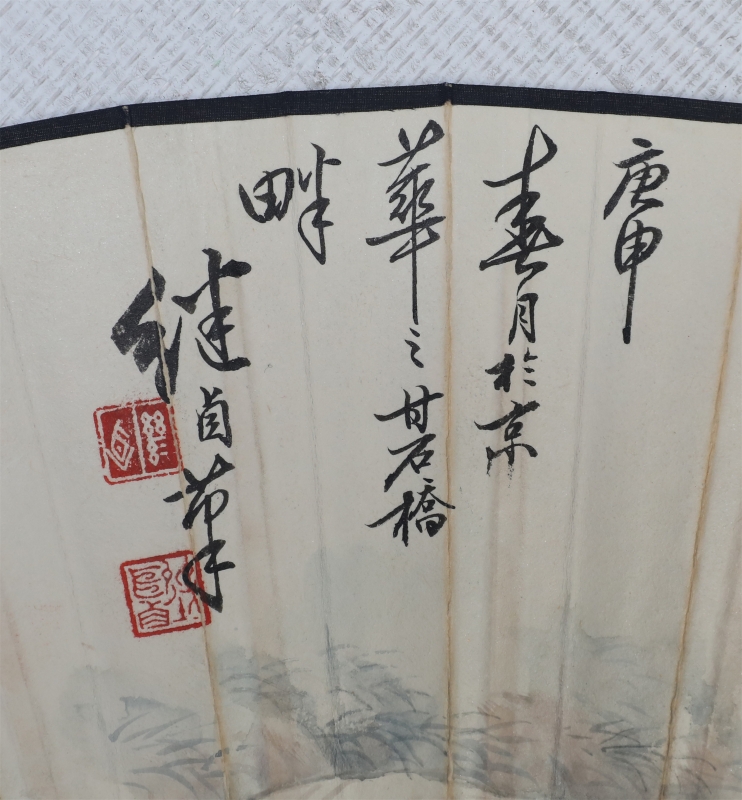 庚申
春月於京
華之甘石橋
畔
继貞筆